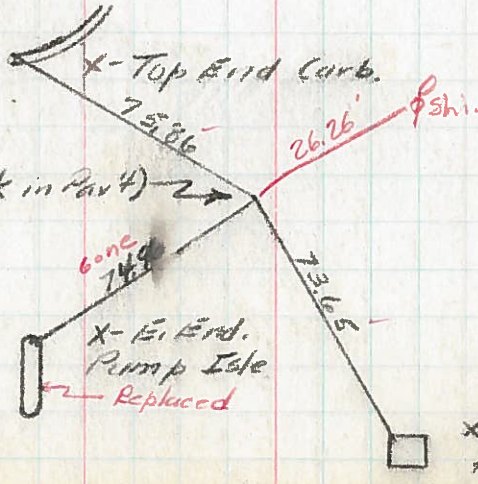 x-Top End Curb.
75.86
26.26'
in Pav't)
Gone
73.65
x-E. End.
Pump Isle
Replaced
x